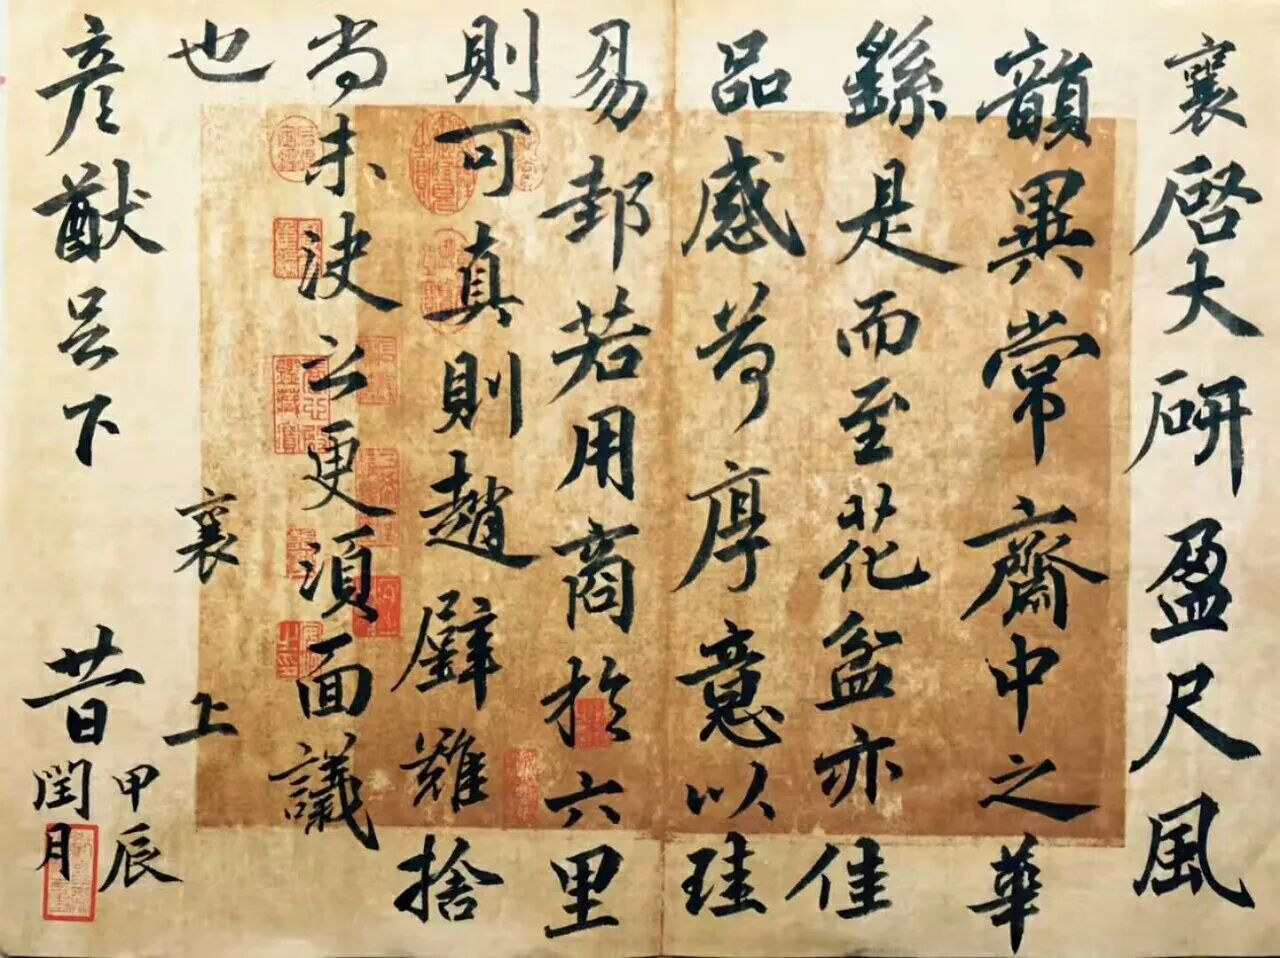 襄啓大研盈尺風
韻異常齋中之華
繇是而至花盆亦佳
品感荷厚意以珪
易邽若用商於六里
則可真則趙璧難捨
尚未決云更須面議
也 襄上
彦猷足下
甲辰
閏月昔